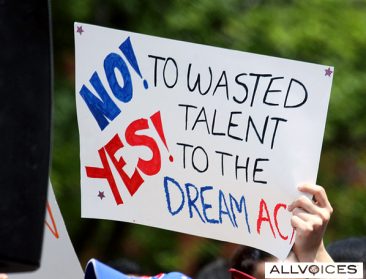 NO! TO WASTED
TALENT
YES! TO THE
DREAM AC
ALLVOICES